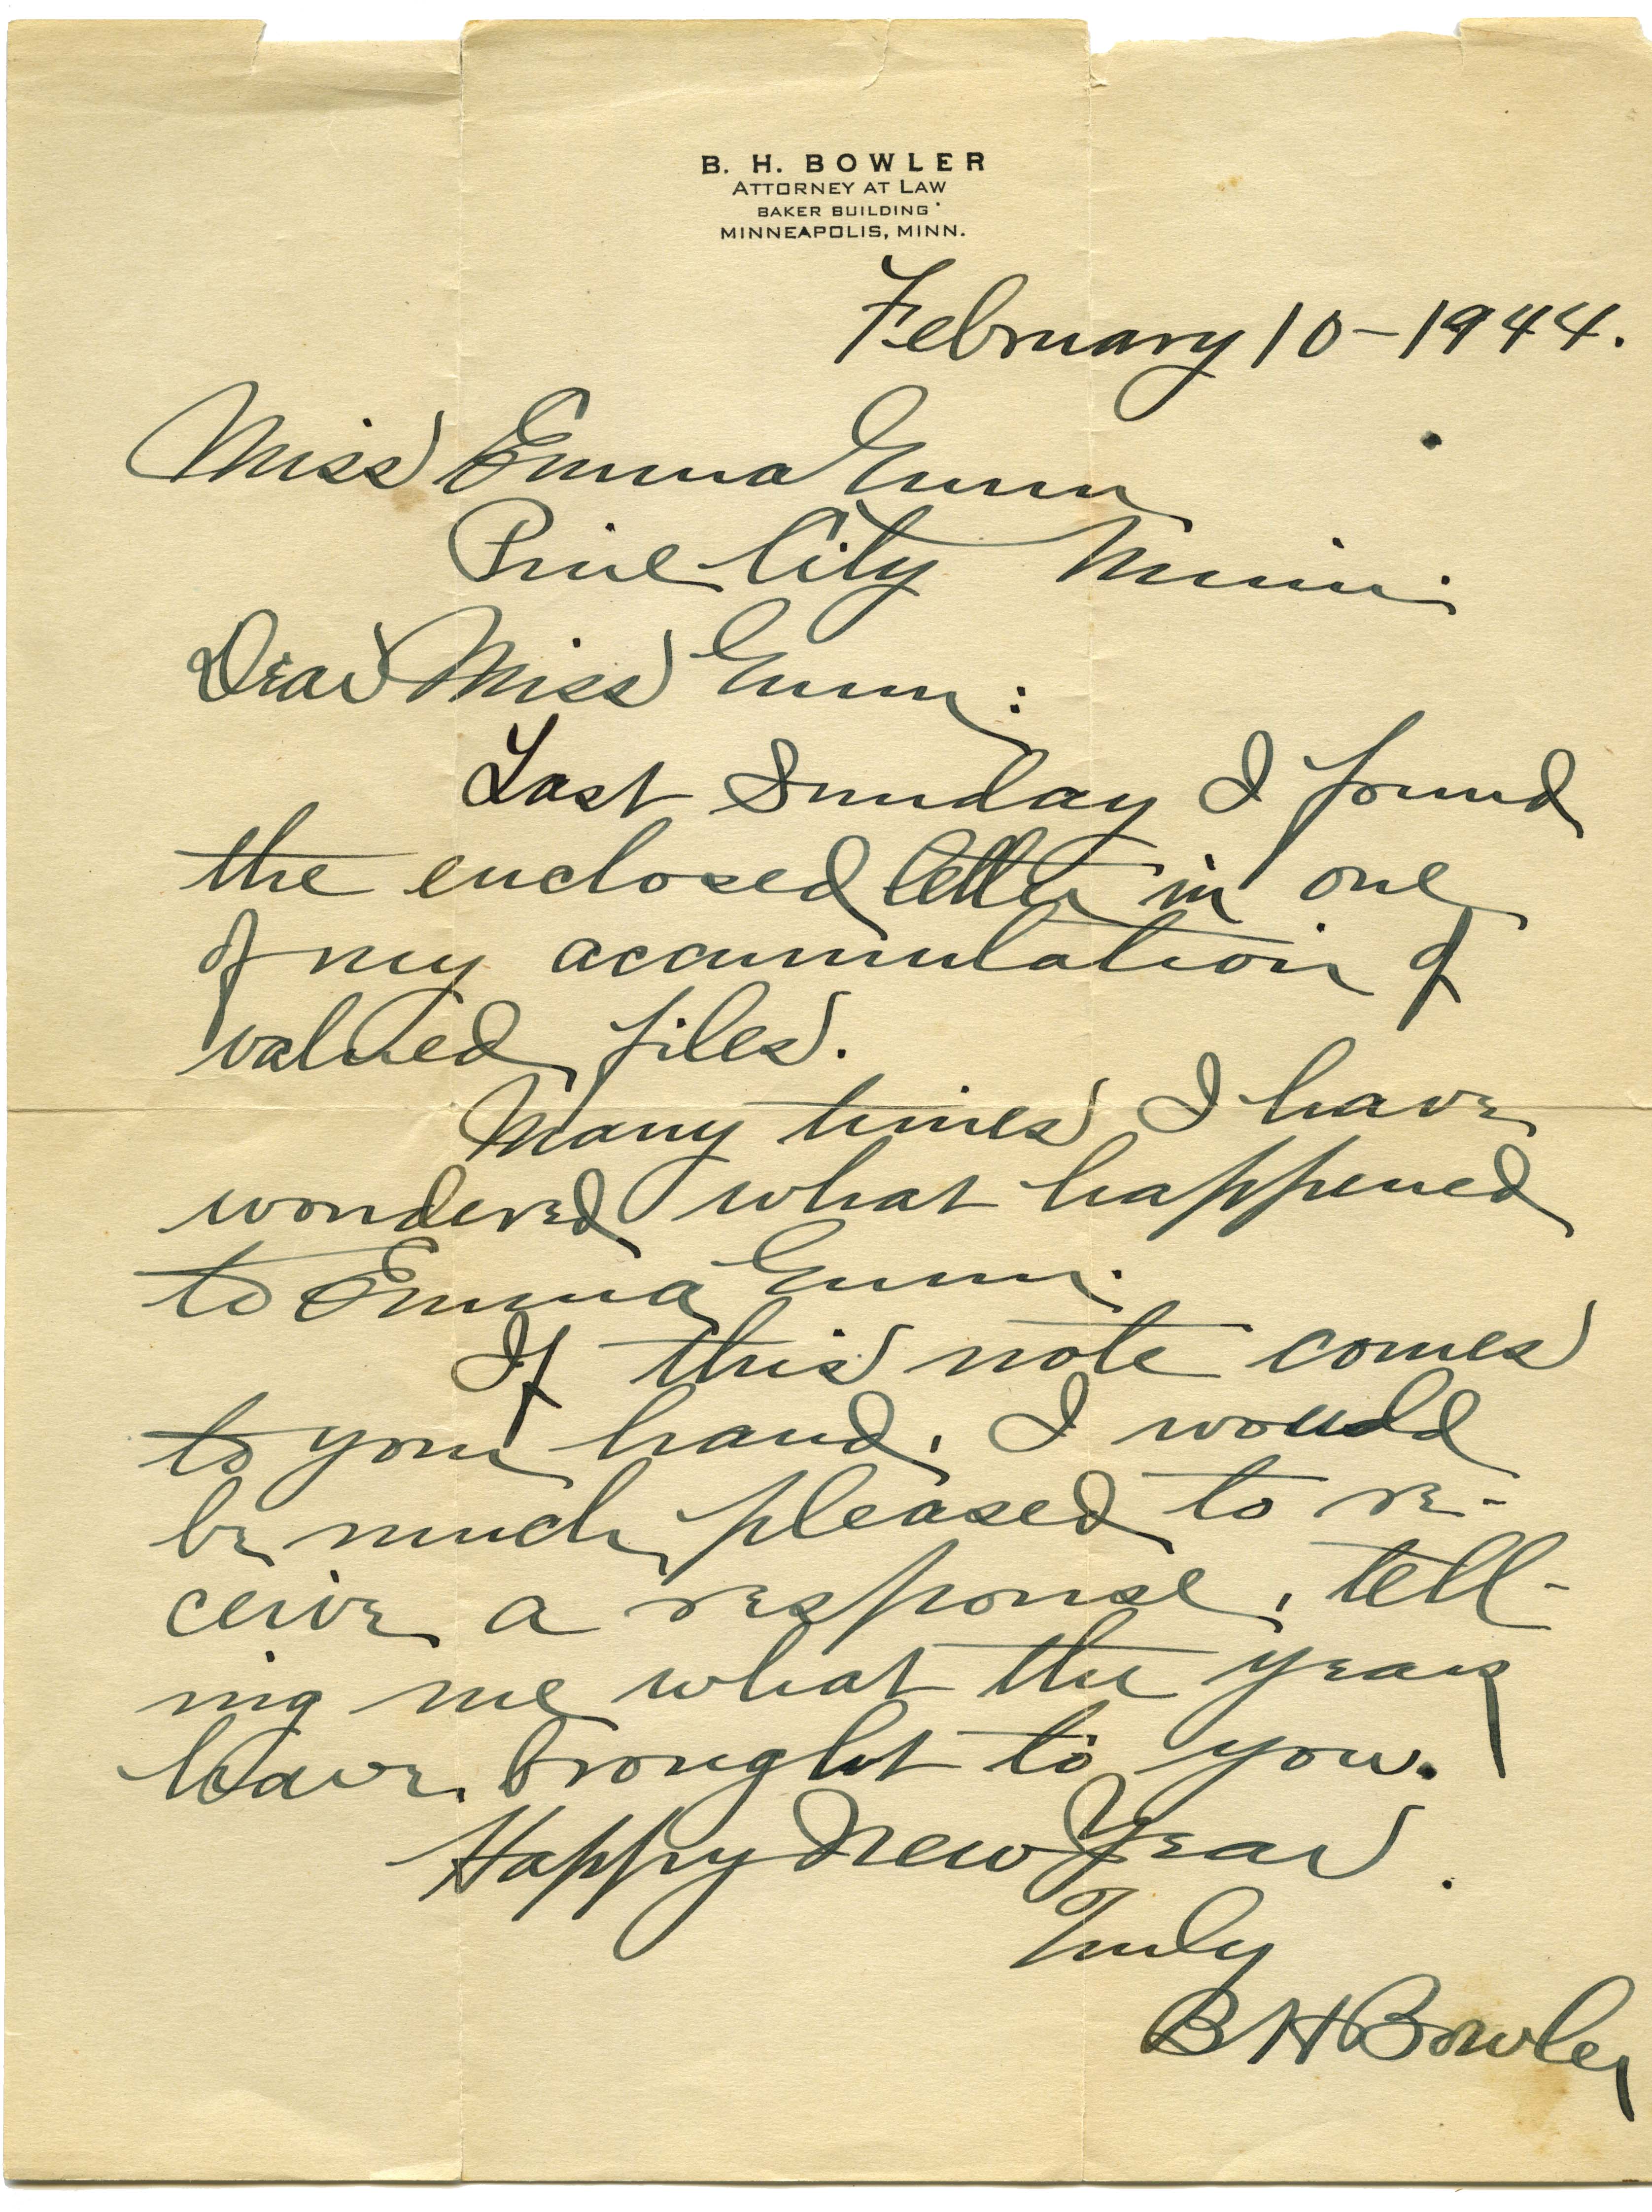 B. H. BOWLER
ATTORNEY AT LAW
BAKER BUILDING
MINNEAPOLIS, MINN.
February 10-1944.
Miss Emma Gunn
Pine City Minn.
Dear Miss Gunn:
Last Sunday I found
the enclosed letter in one
of my accumulation of
valued files.
Many times I have
wondered what happened
to Emma Gunn.
If this note comes
to your hand, I would
be much pleased to re-
ceive a response, tell-
ing me what the years
have brought to you.
Happy New Year.
Truly
B H Bowler